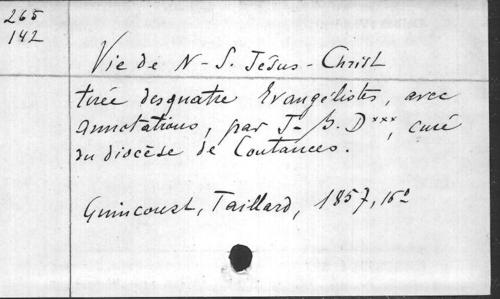 265
142
Vie de N-S. Jésus-Christ
tirée des quatre Evangélistes, avec
annotations, par J-B. D***, curé
du diocèse de Coutances.
Guincourt, Taillard, 1857, 16º